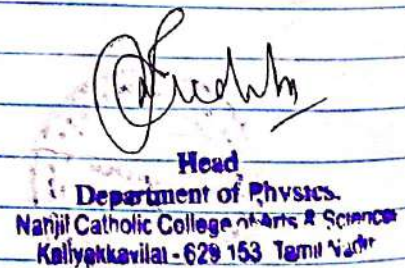 Head
Department of Physics.
Nanjil Catholic College of Arts & Science
Kaliyakkavilai - 629 153 Tamil Nadu